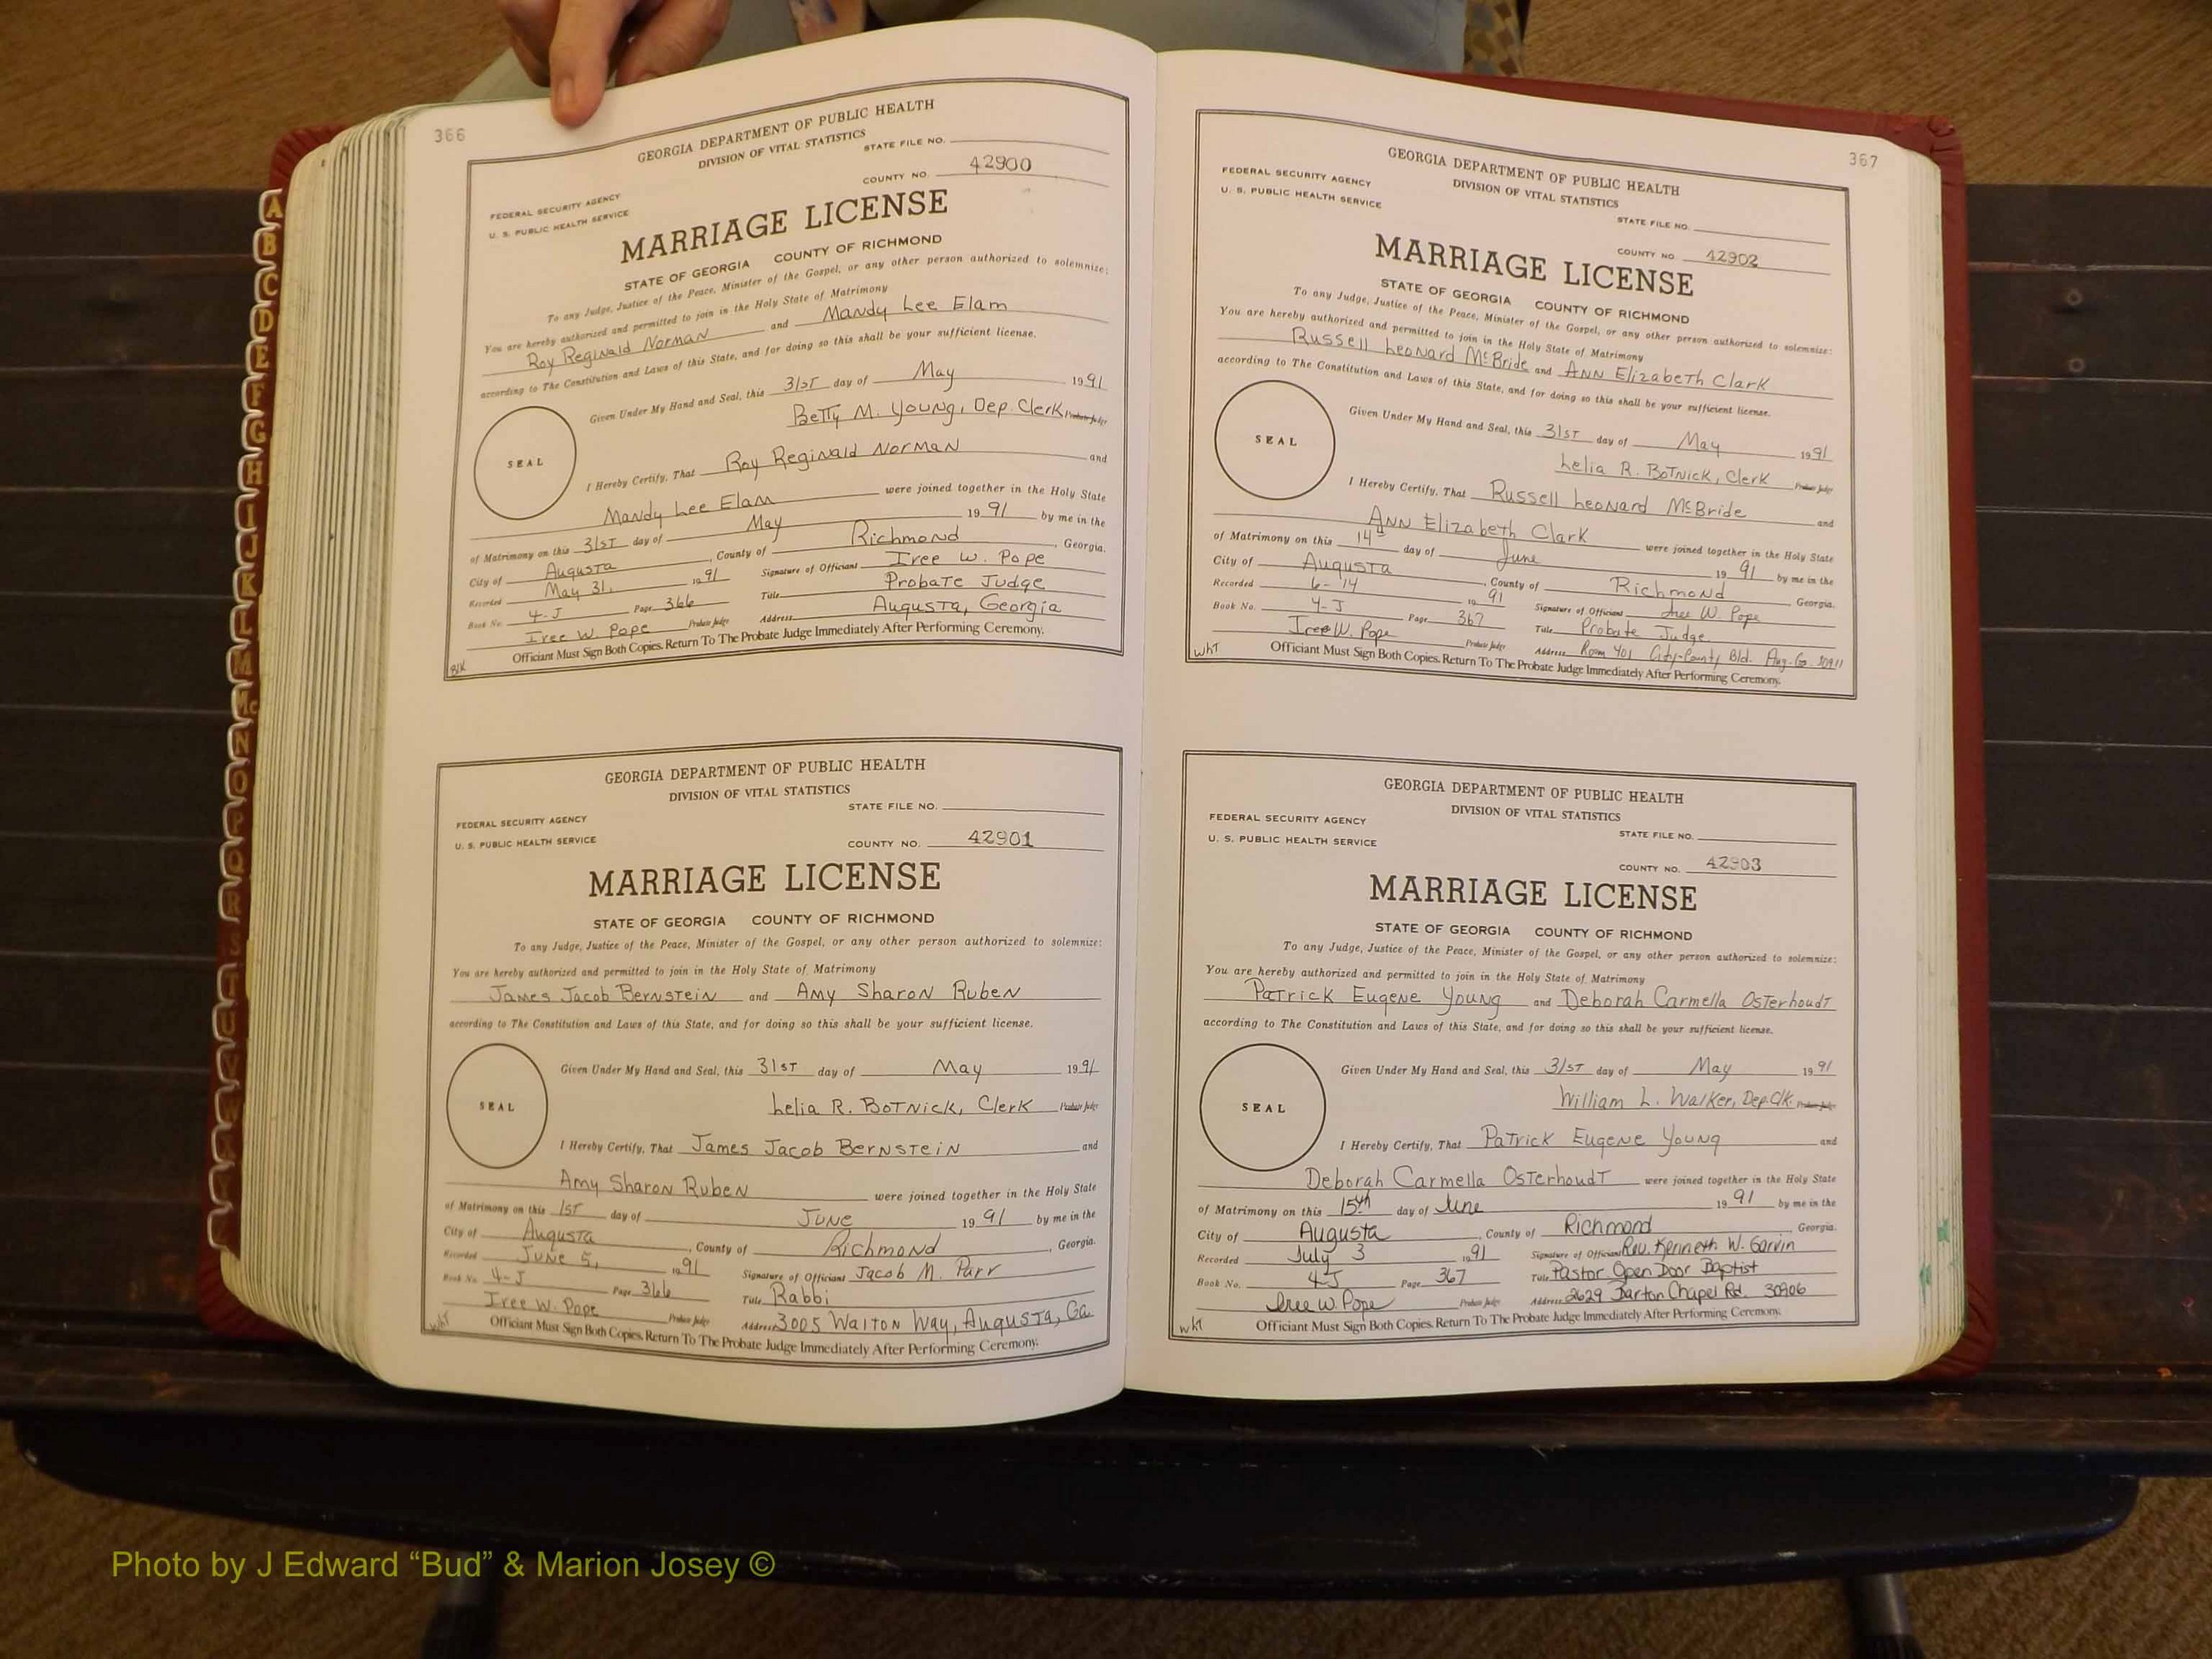 366
GEORGIA DEPARTMENT OF PUBLIC HEALTH
DIVISION OF VITAL STATISTICS
STATE FILE NO.
FEDERAL SECURITY AGENCY
U. S. PUBLIC HEALTH SERVICE
COUNTY NO. 42900
MARRIAGE LICENSE
STATE OF GEORGIA COUNTY OF RICHMOND
To any Judge, Justice of the Peace, Minister of the Gospel, or any other person authorized to solemnize:
You are hereby authorized and permitted to join in the Holy State of Matrimony
Roy Reginald Norman and Mandy Lee Elam
according to The Constitution and Laws of this State, and for doing so this shall be your sufficient license.
Given Under My Hand and Seal, this 31st day of May 1991
Betty M. Young, Dep. Clerk Probate Judge
SEAL
I Hereby Certify, That Roy Reginald Norman and
Mandy Lee Elam were joined together in the Holy State
of Matrimony on this 31st day of May 1991 by me in the
City of Augusta, County of Richmond, Georgia.
Recorded May 31, 1991 Signature of Officiant Iree W. Pope
Book No. 4-J Page 366 Title Probate Judge
Iree W. Pope Probate Judge Address Augusta, Georgia
Officiant Must Sign Both Copies. Return To The Probate Judge Immediately After Performing Ceremony.
Blk
GEORGIA DEPARTMENT OF PUBLIC HEALTH
DIVISION OF VITAL STATISTICS
STATE FILE NO.
FEDERAL SECURITY AGENCY
U. S. PUBLIC HEALTH SERVICE
COUNTY NO. 42901
MARRIAGE LICENSE
STATE OF GEORGIA COUNTY OF RICHMOND
To any Judge, Justice of the Peace, Minister of the Gospel, or any other person authorized to solemnize:
You are hereby authorized and permitted to join in the Holy State of Matrimony
James Jacob Bernstein and Amy Sharon Ruben
according to The Constitution and Laws of this State, and for doing so this shall be your sufficient license.
Given Under My Hand and Seal, this 31st day of May 1991
Lelia R. Botnick, Clerk Probate Judge
SEAL
I Hereby Certify, That James Jacob Bernstein and
Amy Sharon Ruben were joined together in the Holy State
of Matrimony on this 1st day of June 1991 by me in the
City of Augusta, County of Richmond, Georgia.
Recorded June 5, 1991 Signature of Officiant Jacob M. Parr
Book No. 4-J Page 366 Title Rabbi
Iree W. Pope Probate Judge Address 3005 Walton Way, Augusta, Ga.
Officiant Must Sign Both Copies. Return To The Probate Judge Immediately After Performing Ceremony.
wht
367
GEORGIA DEPARTMENT OF PUBLIC HEALTH
DIVISION OF VITAL STATISTICS
FEDERAL SECURITY AGENCY
U. S. PUBLIC HEALTH SERVICE
STATE FILE NO.
COUNTY NO. 42902
MARRIAGE LICENSE
STATE OF GEORGIA COUNTY OF RICHMOND
To any Judge, Justice of the Peace, Minister of the Gospel, or any other person authorized to solemnize:
You are hereby authorized and permitted to join in the Holy State of Matrimony
Russell Leonard McBride and Ann Elizabeth Clark
according to The Constitution and Laws of this State, and for doing so this shall be your sufficient license.
Given Under My Hand and Seal, this 31st day of May 1991
Lelia R. Botnick, Clerk Probate Judge
SEAL
I Hereby Certify, That Russell Leonard McBride and
Ann Elizabeth Clark were joined together in the Holy State
of Matrimony on this 14th day of June 1991 by me in the
City of Augusta, County of Richmond Georgia.
Recorded 6-14 1991 Signature of Officiant Iree W. Pope
Book No. 4-J Page 367 Title Probate Judge
Iree W. Pope Probate Judge Address Room 401 City-County Bld. Aug. Ga. 30911
Officiant Must Sign Both Copies. Return To The Probate Judge Immediately After Performing Ceremony.
wht
GEORGIA DEPARTMENT OF PUBLIC HEALTH
DIVISION OF VITAL STATISTICS
FEDERAL SECURITY AGENCY
U. S. PUBLIC HEALTH SERVICE
STATE FILE NO.
COUNTY NO. 42903
MARRIAGE LICENSE
STATE OF GEORGIA COUNTY OF RICHMOND
To any Judge, Justice of the Peace, Minister of the Gospel, or any other person authorized to solemnize:
You are hereby authorized and permitted to join in the Holy State of Matrimony
Patrick Eugene Young and Deborah Carmella Osterhoudt
according to The Constitution and Laws of this State, and for doing so this shall be your sufficient license.
Given Under My Hand and Seal, this 31st day of May 1991
William L. Walker, Dep. Clk. Probate Judge
SEAL
I Hereby Certify, That Patrick Eugene Young and
Deborah Carmella Osterhoudt were joined together in the Holy State
of Matrimony on this 15th day of June 1991 by me in the
City of Augusta, County of Richmond Georgia.
Recorded July 3 1991 Signature of Officiant Rev. Kenneth W. Garvin
Book No. 4-J Page 367 Title Pastor Open Door Baptist
Iree W. Pope Probate Judge Address 2629 Barton Chapel Rd. 30906
Officiant Must Sign Both Copies. Return To The Probate Judge Immediately After Performing Ceremony.
wht
A
B
C
D
E
F
G
H
I
J
K
L
M
Mc
N
O
P
Q
R
S
T
U
V
W
Photo by J Edward “Bud” & Marion Josey ©